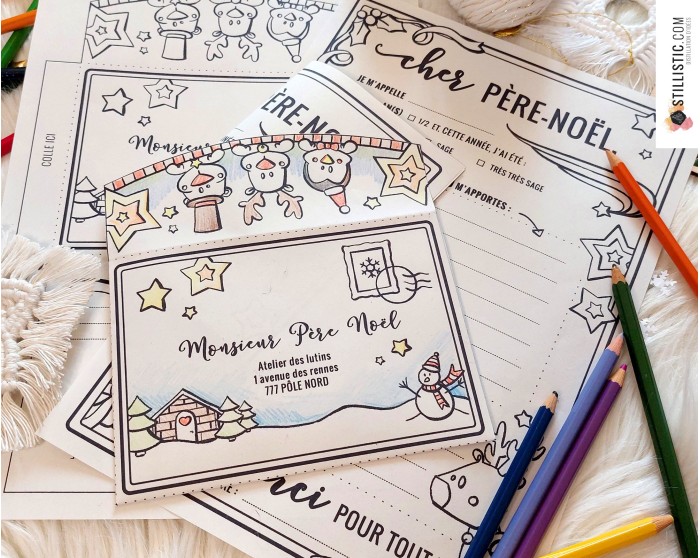 STILLISTIC.COM
DISTILLATION D'IDÉES
cher PÈRE-NOËL
JE M'APPELLE
AN(S) 1/2 ET CETTE ANNÉE, J'AI ÉTÉ :
SAGE
TRÈS TRÈS SAGE
M'APPORTES :
COLLE ICI
Monsieur
PÈRE-NO
Monsieur Père Noël
Atelier des lutins
1 avenue des rennes
777 PÔLE NORD
rci POUR TOUT